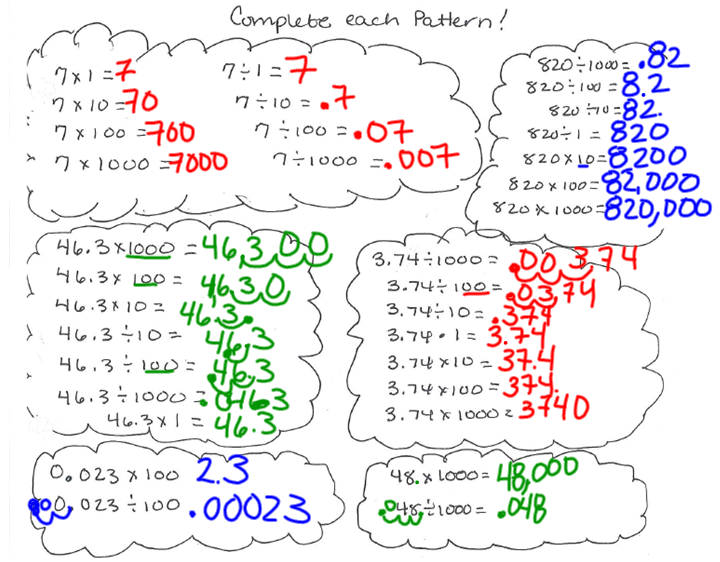 Complete each Pattern!
7 x 1 = 7
7 x 10 = 70
7 x 100 = 700
7 x 1000 = 7000
7 ÷ 1 = 7
7 ÷ 10 = .7
7 ÷ 100 = .07
7 ÷ 1000 = .007
820 ÷ 1000 = .82
820 ÷ 100 = 8.2
820 ÷ 10 = 82.
820 ÷ 1 = 820
820 x 10 = 8200
820 x 100 = 82,000
820 x 1000 = 820,000
46.3 x 1000 = 46,300
46.3 x 100 = 4630
46.3 x 10 = 463.
46.3 ÷ 10 = 4.63
46.3 ÷ 100 = .463
46.3 ÷ 1000 = .0463
46.3 x 1 = 46.3
3.74 ÷ 1000 = .00374
3.74 ÷ 100 = .0374
3.74 ÷ 10 = .374
3.74 • 1 = 3.74
3.74 x 10 = 37.4
3.74 x 100 = 374.
3.74 x 1000 = 3740
0.023 x 100 2.3
000.023 ÷ 100 .00023
48. x 1000 = 48,000
.048. ÷ 1000 = .048